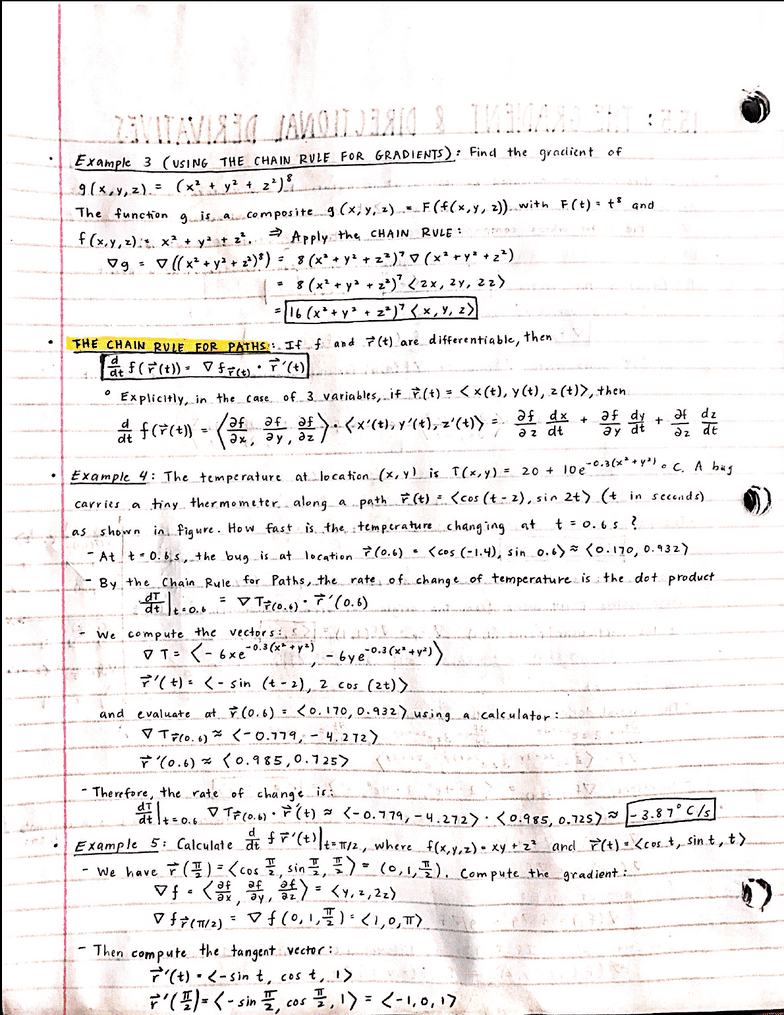 15.5: THE GRADIENT & DIRECTIONAL DERIVATIVES
• Example 3 (USING THE CHAIN RULE FOR GRADIENTS): Find the gradient of
g(x,y,z) = (x² + y² + z²)⁸
The function g is a composite g(x,y,z) = F(f(x,y,z)) with F(t) = t⁸ and
f(x,y,z) = x² + y² + z². ⇒ Apply the CHAIN RULE:
∇g = ∇((x² + y² + z²)⁸) = 8(x² + y² + z²)⁷ ∇(x² + y² + z²)
= 8(x² + y² + z²)⁷ <2x, 2y, 2z>
= 16(x² + y² + z²)⁷ <x, y, z>
• THE CHAIN RULE FOR PATHS: If f and r⃗(t) are differentiable, then
d/dt f(r⃗(t)) = ∇f r⃗(t) · r⃗'(t)
° Explicitly, in the case of 3 variables, if r⃗(t) = <x(t), y(t), z(t)>, then
d/dt f(r⃗(t)) = <∂f/∂x, ∂f/∂y, ∂f/∂z> · <x'(t), y'(t), z'(t)> = ∂f/∂z dx/dt + ∂f/∂y dy/dt + ∂f/∂z dz/dt
• Example 4: The temperature at location (x,y) is T(x,y) = 20 + 10e^-0.3(x² + y²) ° C. A bug
carries a tiny thermometer along a path r⃗(t) = <cos(t-2), sin 2t> (t in seconds)
as shown in figure. How fast is the temperature changing at t = 0.6 s ?
- At t = 0.6 s, the bug is at location r⃗(0.6) = <cos(-1.4), sin 0.6> ≈ <0.170, 0.932>
- By the Chain Rule for Paths, the rate of change of temperature is the dot product
dT/dt |t=0.6 = ∇T r⃗(0.6) · r⃗'(0.6)
- We compute the vectors:
∇T = <-6xe^-0.3(x² + y²), -6ye^-0.3(x² + y²)>
r⃗'(t) = <-sin(t-2), 2 cos(2t)>
and evaluate at r⃗(0.6) = <0.170, 0.932> using a calculator:
∇T r⃗(0.6) ≈ <-0.779, -4.272>
r⃗'(0.6) ≈ <0.985, 0.725>
- Therefore, the rate of change is:
dT/dt |t=0.6 ∇T r⃗(0.6) · r⃗'(t) ≈ <-0.779, -4.272> · <0.985, 0.725> ≈ -3.87° C/s
• Example 5: Calculate d/dt f r⃗'(t)|t=π/2, where f(x,y,z) = xy + z² and r⃗(t) = <cos t, sin t, t>
- We have r⃗(π/2) = <cos π/2, sin π/2, π/2> = (0, 1, π/2). Compute the gradient:
∇f = <∂f/∂x, ∂f/∂y, ∂f/∂z> = <y, z, 2z>
∇f r⃗(π/2) = ∇f(0, 1, π/2) = <1, 0, π>
- Then compute the tangent vector:
r⃗'(t) = <-sin t, cos t, 1>
r⃗'(π/2) = <-sin π/2, cos π/2, 1> = <-1, 0, 1>